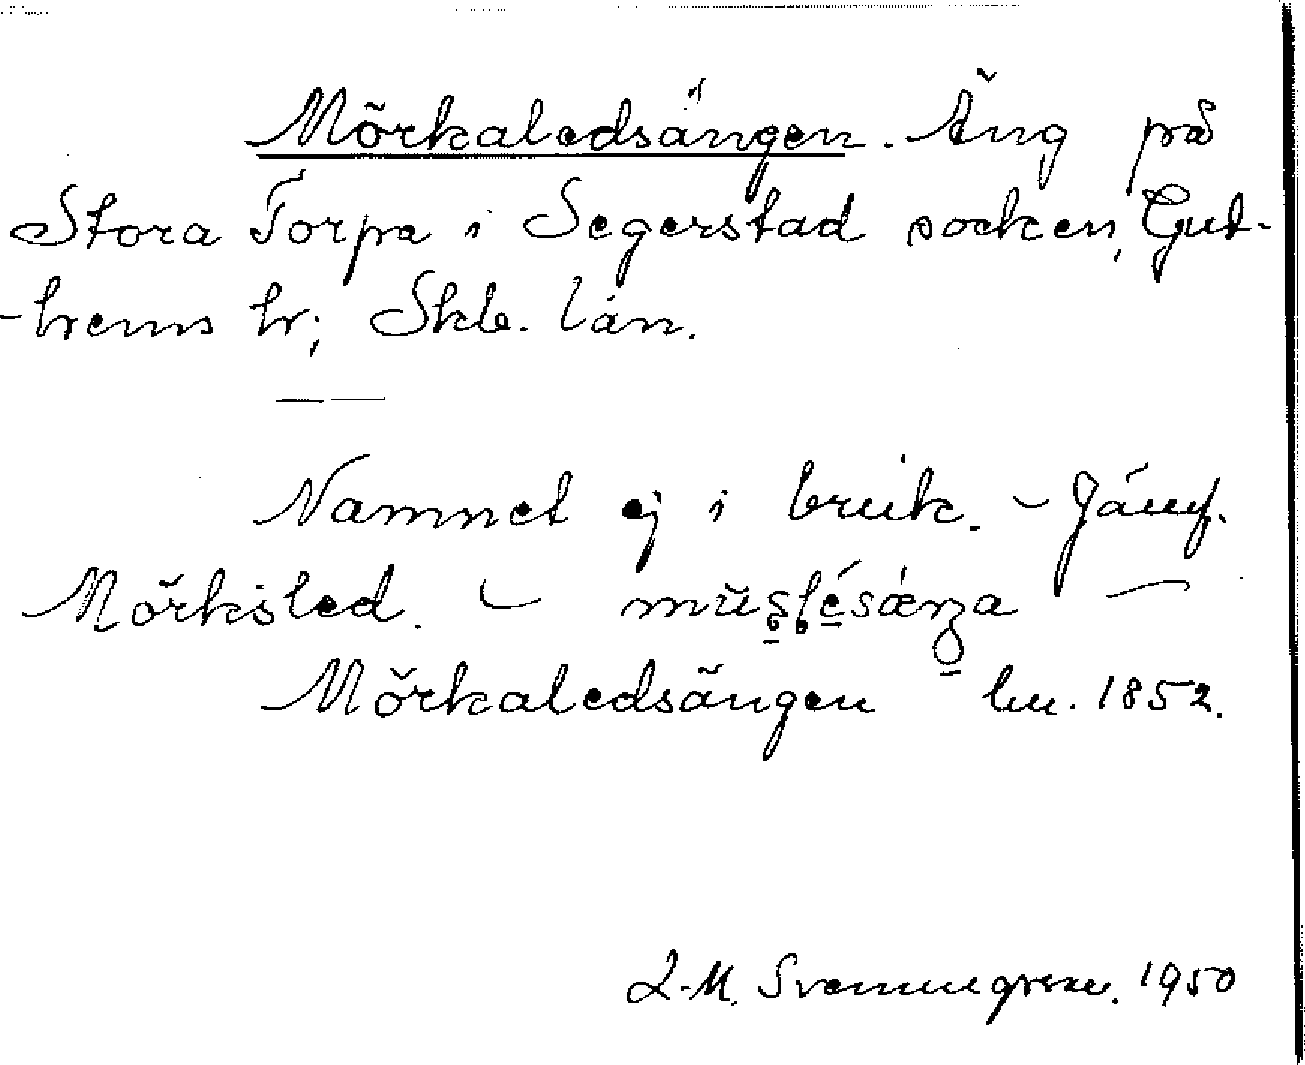 Mörkaledsängen. Äng på
Stora Torpa i Segerstad socken, Gud-
-hems hr; Skb. län.
Namnet ej i bruk. - Jämf.
Mörksled. -
Mörkaledsängen lm. 1852.
L-M. Svenungsson. 1950